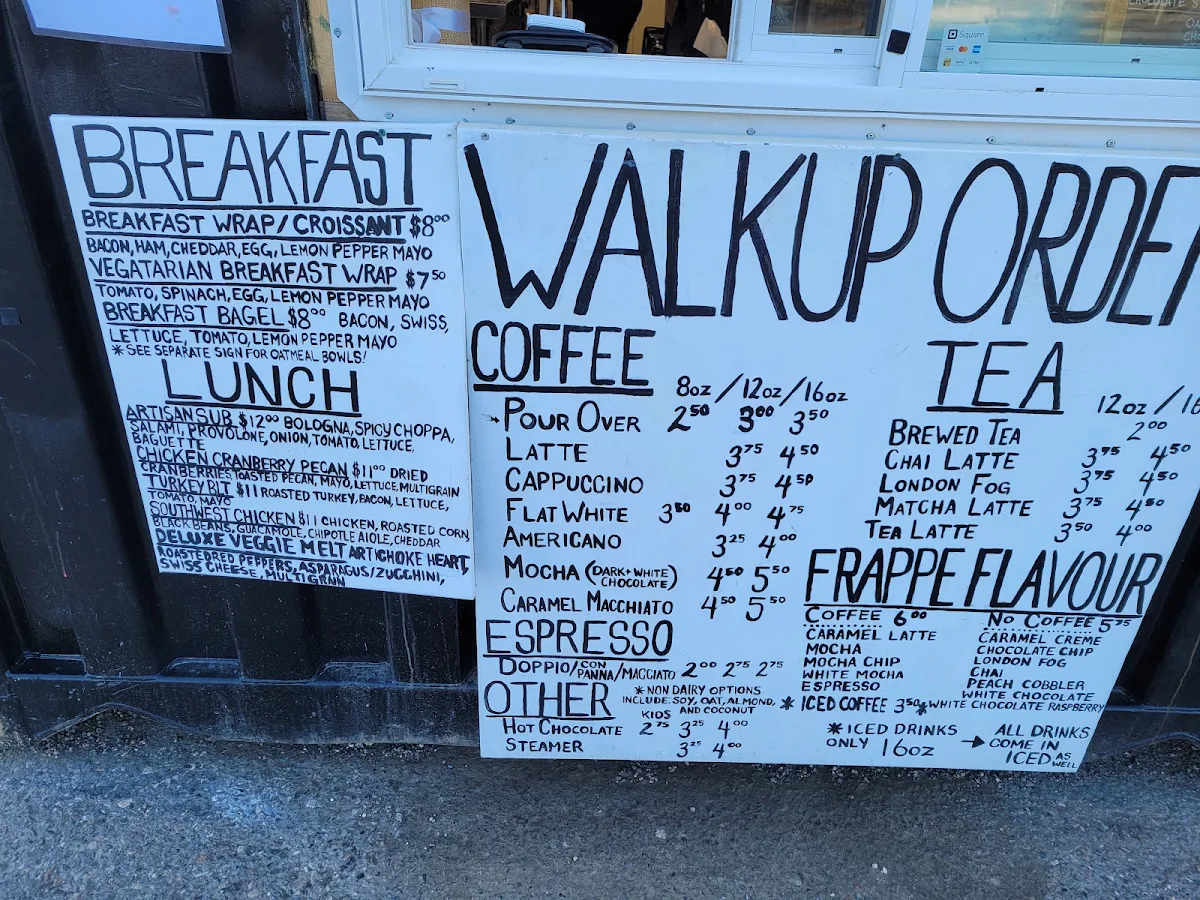 Square
BREAKFAST
BREAKFAST WRAP/CROISSANT $8⁰⁰
BACON, HAM, CHEDDAR, EGG, LEMON PEPPER MAYO
VEGATARIAN BREAKFAST WRAP $7⁵⁰
TOMATO, SPINACH, EGG, LEMON PEPPER MAYO
BREAKFAST BAGEL $8⁰⁰ BACON, SWISS,
LETTUCE, TOMATO, LEMON PEPPER MAYO
*SEE SEPARATE SIGN FOR OATMEAL BOWLS!
LUNCH
ARTISAN SUB $12⁰⁰ BOLOGNA, SPICY CHOPPA,
SALAMI, PROVOLONE, ONION, TOMATO, LETTUCE,
BAGUETTE
CHICKEN CRANBERRY PECAN $11⁰⁰ DRIED
CRANBERRIES, TOASTED PECAN, MAYO, LETTUCE, MULTIGRAIN
TURKEY BLT $11 ROASTED TURKEY, BACON, LETTUCE,
TOMATO, MAYO
SOUTHWEST CHICKEN $11 CHICKEN, ROASTED CORN,
BLACK BEANS, GUACAMOLE, CHIPOTLE AIOLE, CHEDDAR
DELUXE VEGGIE MELT ARTICHOKE HEART,
ROASTED RED PEPPERS, ASPARAGUS/ZUCCHINI,
SWISS CHEESE, MULTIGRAIN
WALKUP ORDER
COFFEE
8oz / 12oz / 16oz
→ POUR OVER 2⁵⁰ 3⁰⁰ 3⁵⁰
LATTE 3⁷⁵ 4⁵⁰
CAPPUCCINO 3⁷⁵ 4⁵⁰
FLAT WHITE 3⁵⁰ 4⁰⁰ 4⁷⁵
AMERICANO 3²⁵ 4⁰⁰
MOCHA (DARK + WHITE CHOCOLATE) 4⁵⁰ 5⁵⁰
CARAMEL MACCHIATO 4⁵⁰ 5⁵⁰
ESPRESSO
DOPPIO/CON PANNA/MACCIATO 2⁰⁰ 2⁷⁵ 2⁷⁵
OTHER
*NON DAIRY OPTIONS
INCLUDE: SOY, OAT, ALMOND,
AND COCONUT
KIDS
HOT CHOCOLATE 2⁷⁵ 3²⁵ 4⁰⁰
STEAMER 3²⁵ 4⁰⁰
TEA
12oz / 16
BREWED TEA 2⁰⁰
CHAI LATTE 3⁷⁵ 4⁵⁰
LONDON FOG 3⁷⁵ 4⁵⁰
MATCHA LATTE 3⁷⁵ 4⁵⁰
TEA LATTE 3⁵⁰ 4⁰⁰
FRAPPE FLAVOUR
COFFEE 6⁰⁰
CARAMEL LATTE
MOCHA
MOCHA CHIP
WHITE MOCHA
ESPRESSO
NO COFFEE 5⁷⁵
CARAMEL CREME
CHOCOLATE CHIP
LONDON FOG
CHAI
PEACH COBBLER
WHITE CHOCOLATE
*WHITE CHOCOLATE RASPBERRY
* ICED COFFEE 3⁵⁰
*ICED DRINKS
ONLY 16oz
→ ALL DRINKS
COME IN
ICED AS WELL